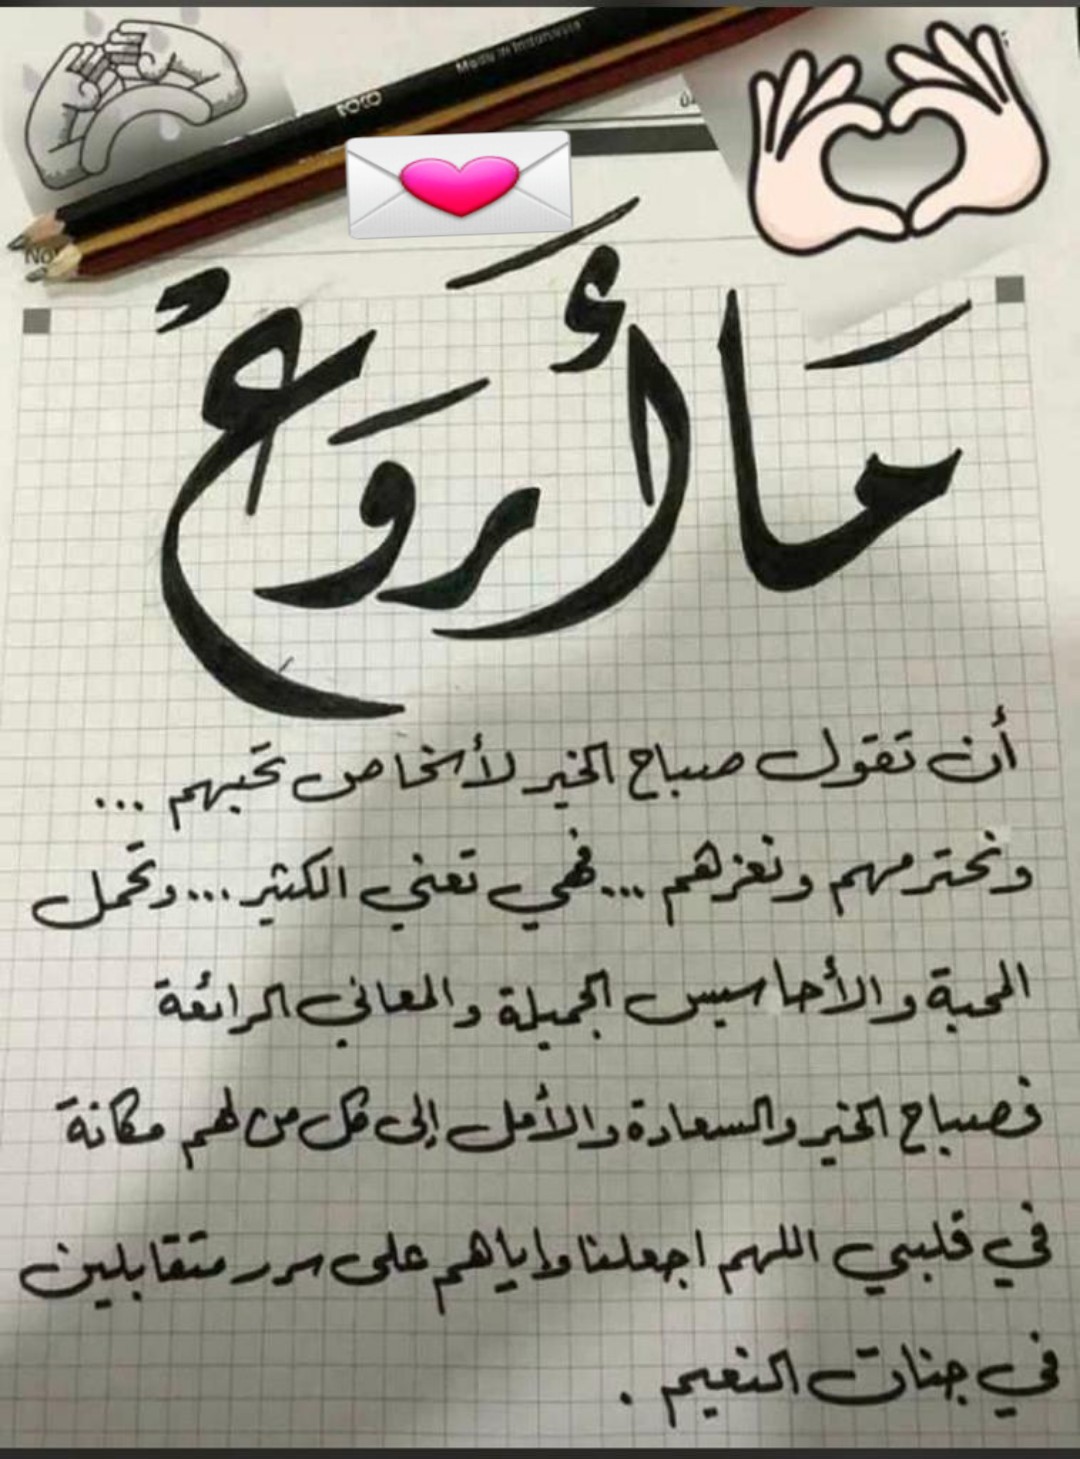 Made in Indonesia
مَا أَرْوَعْ
أن تقول صباح الخير لأشخاص تحبهم ...
ونحترمهم ونعزهم ... فهي تعني الكثير ... وتحمل
المحبة والأحاسيس الجميلة والمعاني الرائعة
فصباح الخير والسعادة والأمل إلى كل من لهم مكانة
في قلبي اللهم اجعلنا واياهم على سرر متقابلين
في جنات النعيم .